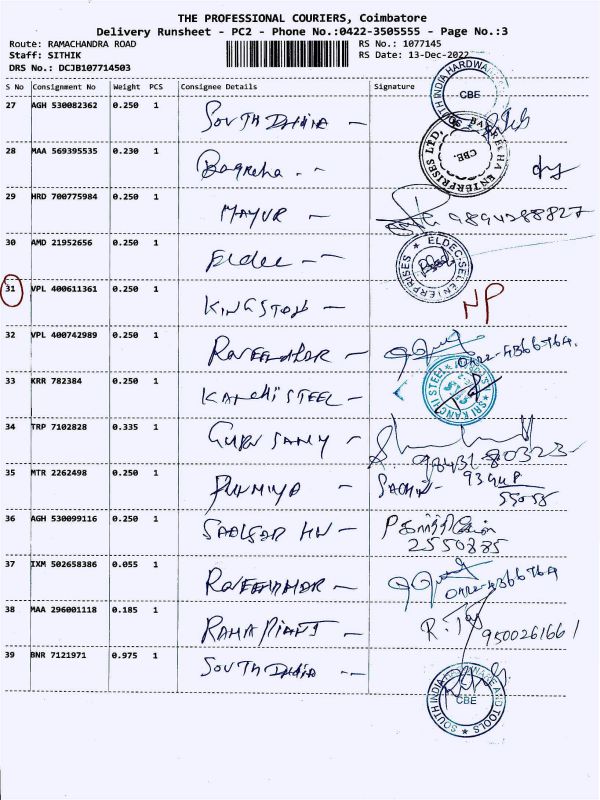 THE PROFESSIONAL COURIERS, Coimbatore
Delivery Runsheet - PC2 - Phone No.:0422-3505555 - Page No.:3
Route: RAMACHANDRA ROAD RS No.: 1077145
Staff: SITHIK RS Date: 13-Dec-2022
DRS No.: DCJB107714503
S No Consignment No Weight PCS Consignee Details Signature
SOUTH INDIA HARDWARE CBE
27 AGH 530082362 0.250 1
South India —
BAGRECHA ENTERPRISES LTD, CBE.
28 MAA 569395535 0.230 1
Bagrecha - -
29 HRD 700775984 0.250 1
MAYUR — 9894288827
30 AMD 21952656 0.250 1
Eldec — ELDEC-SEL ENTERPRISES
31 VPL 400611361 0.250 1
KINGSTON — NP
32 VPL 400742989 0.250 1
Raveendhor — 0422-4366764.
33 KRR 782384 0.250 1
KANCHI STEEL — SRI KANCHI STEEL
34 TRP 7102828 0.335 1
GURU SAMY — 98431-80323
35 MTR 2262498 0.250 1
PUNMIYA — 
55058
36 AGH 530099116 0.250 1
P கார்த்திகேயன்
2550885
37 IXM 502658386 0.055 1
Raveendhor — 0422-4366764
38 MAA 296001118 0.185 1
RAMA — R. Taj 9500261661
39 BNR 7121971 0.975 1
South India —
SOUTH INDIA HARDWARE AND TOOLS CBE